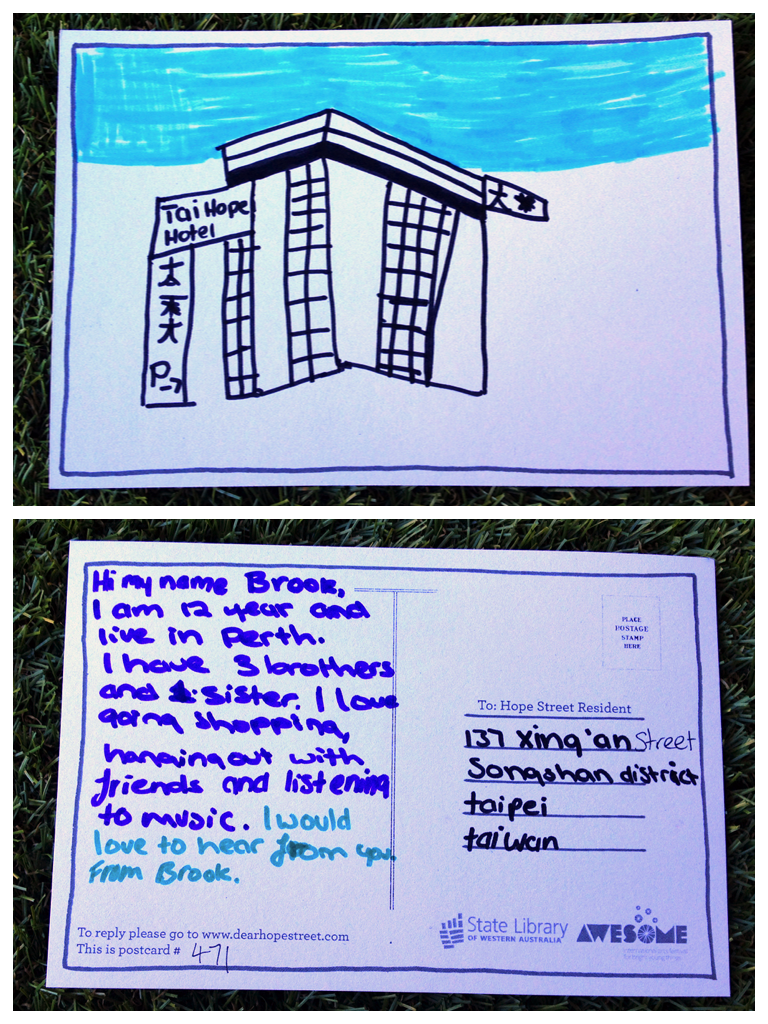 Tai Hope
Hotel
太
P
Hi my name Brook,
I am 12 year and
live in Perth.
I have 3 brothers
and 1 sister. I love
going shopping,
hanging out with
friends and listening
to music. I would
love to hear from you.
From Brook.
To reply please go to www.dearhopestreet.com
This is postcard # 471
PLACE
POSTAGE
STAMP
HERE
To: Hope Street Resident
137 Xing'an Street
Songshan district
taipei
taiwan
State Library
OF WESTERN AUSTRALIA
AWESOME